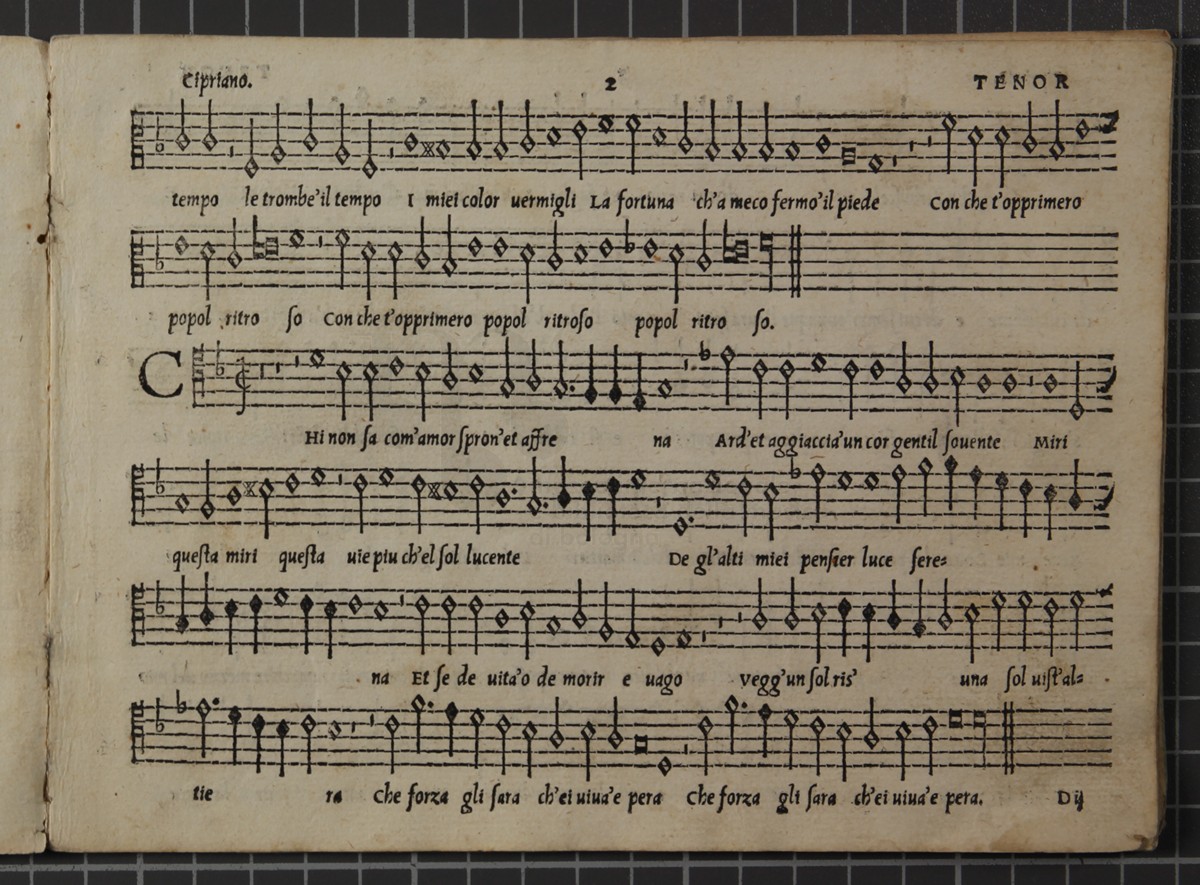 Cipriano. 2 TENOR
tempo le trombe'il tempo I miei color uermigli La fortuna ch'a meco fermo'il piede Con che t'opprimero
popol ritro ſo Con che t'opprimero popol ritroſo popol ritro ſo.
C Hi non ſa com'amor ſpron'et affre na Ard'et aggiaccia'un cor gentil ſouente Miri
queſta miri queſta uie piu ch'el ſol lucente De gl'alti miei penſier luce ſere=
na Et ſe de uita'o de morir e uago vegg'un ſol ris' una ſol uiſt'al=
tie ra Che forza gli ſara ch'ei uiua'e pera Che forza gli ſara ch'ei uiua'e pera. Dij